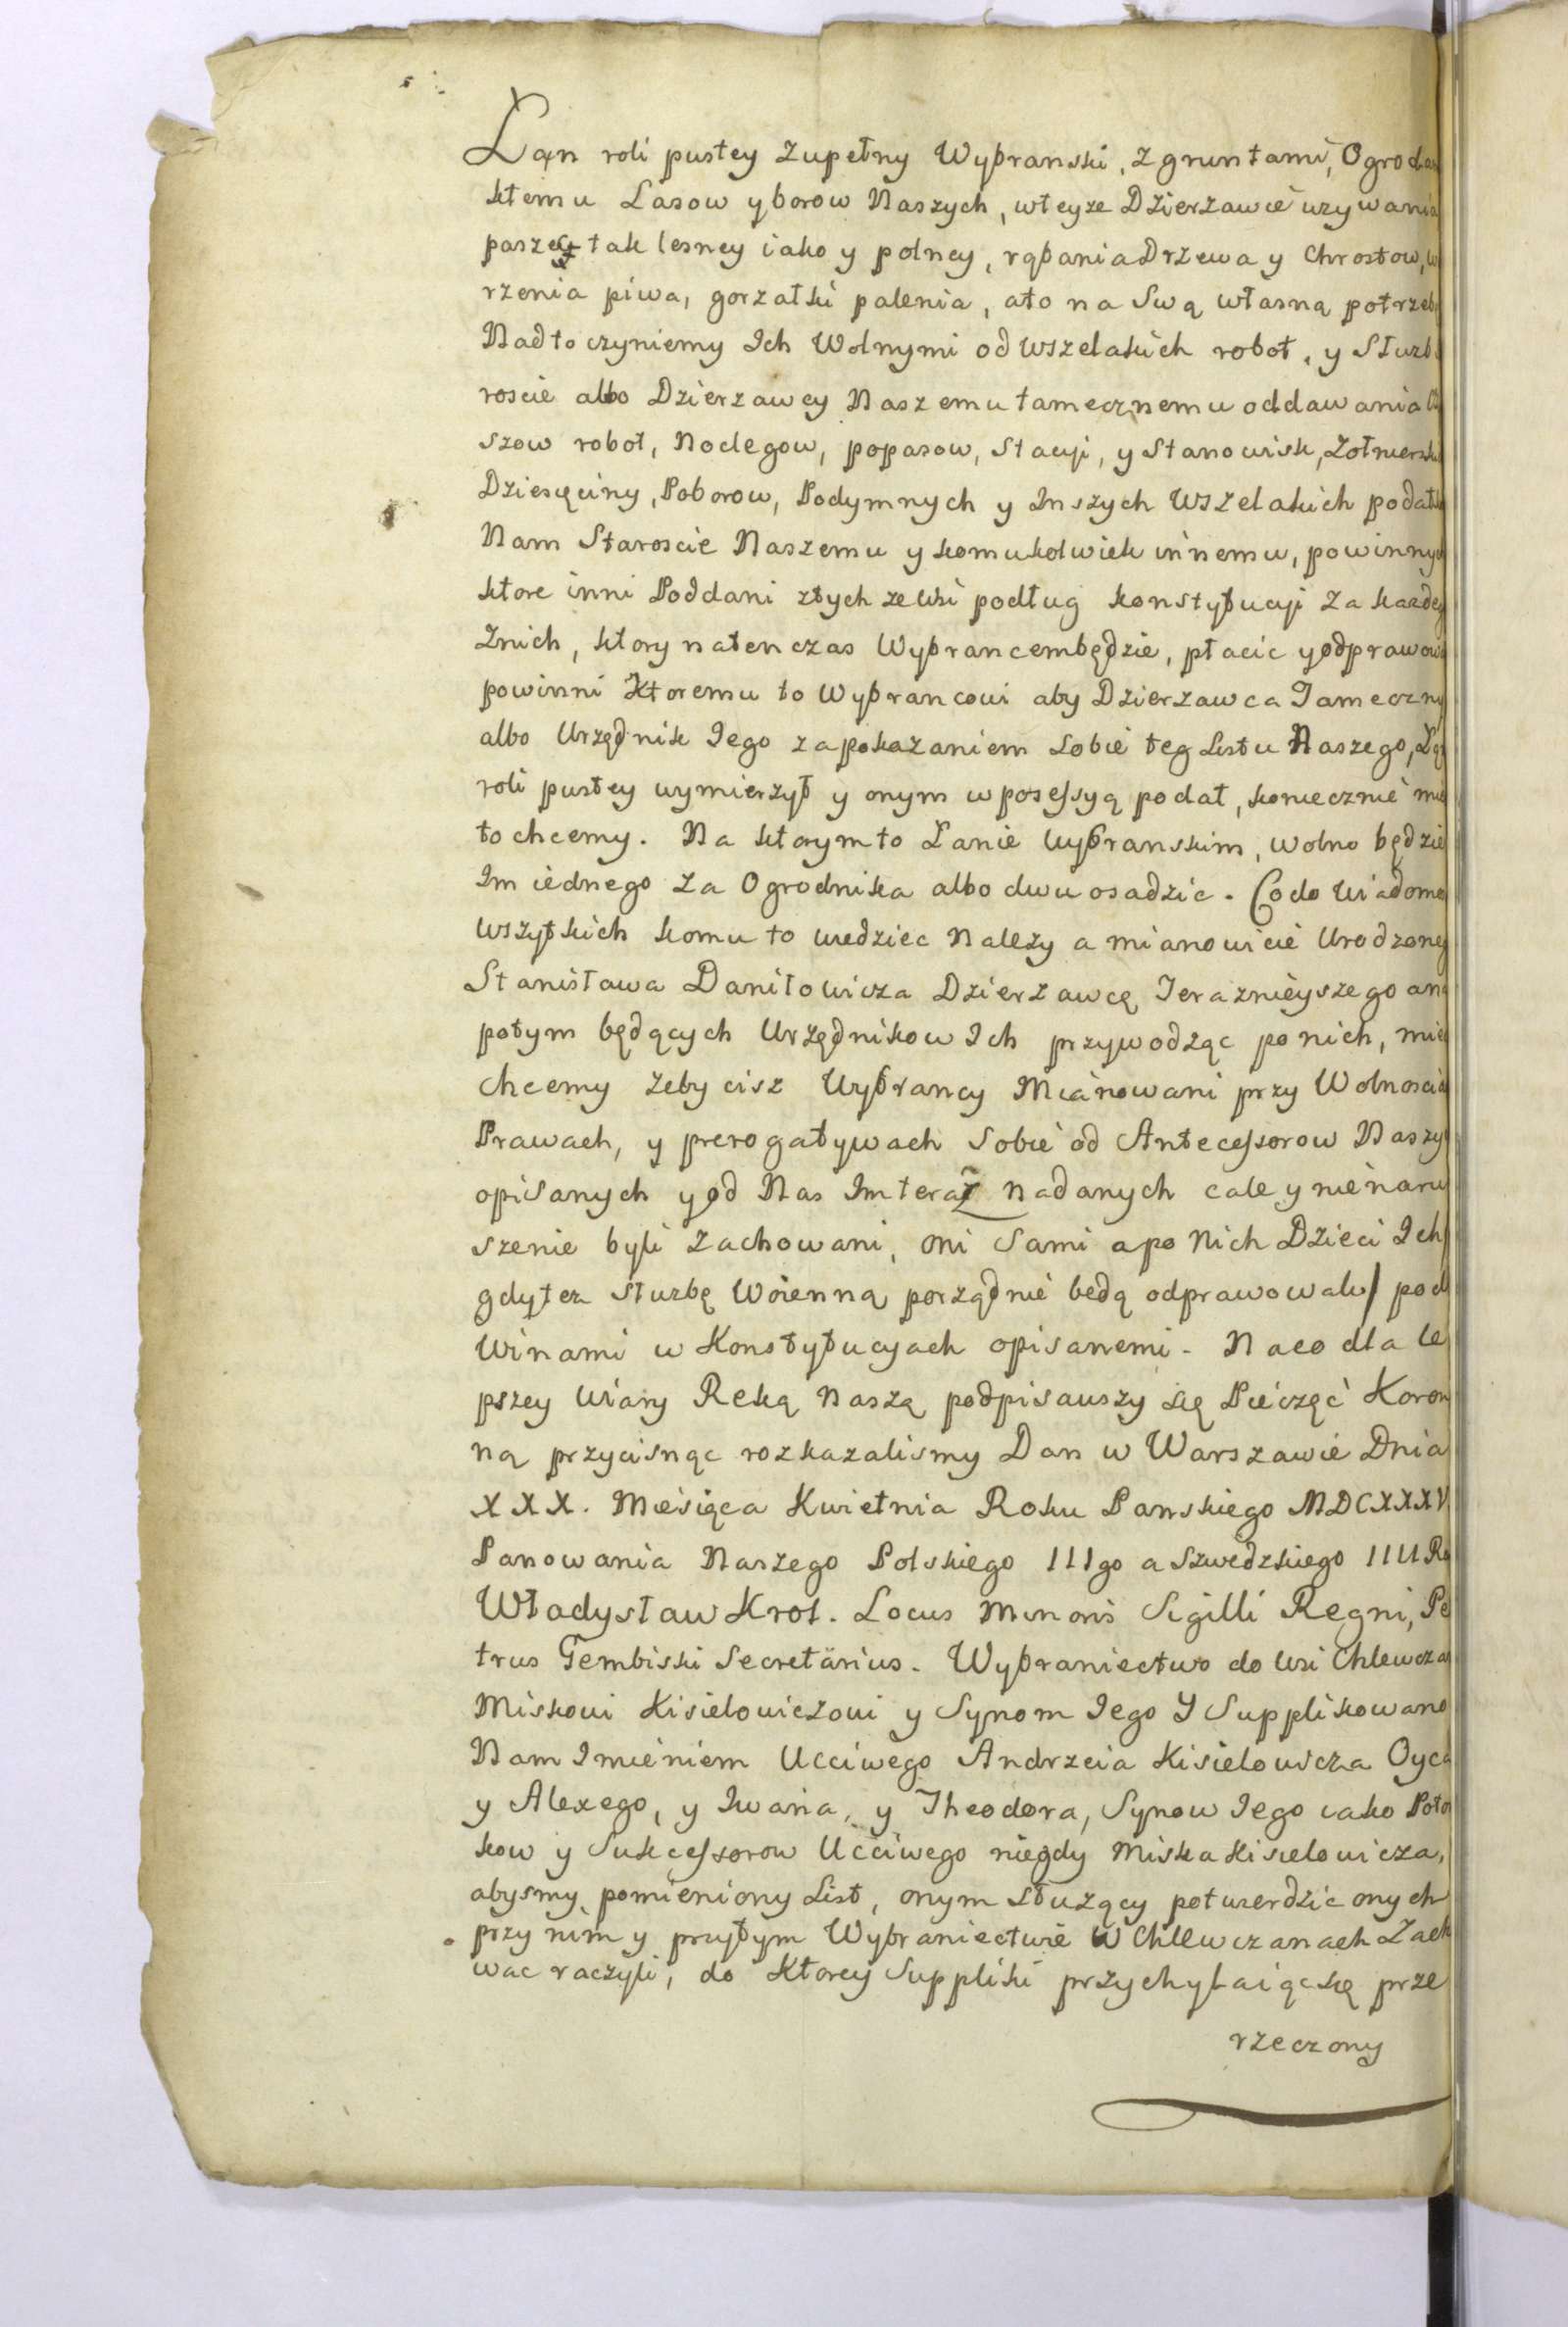 Łąn roli pustey zupełny Wybranski, z gruntami, Ogroda
ktemu Lasow y borow Naszych, wteyze Dzierzawie uzywania
paszey tak lesney iako y polney, rąbania Drzewa y Chrostow, w
rzenia piwa, gorzałki palenia, ato na Swą własną potrzeb
Nadto czyniemy Ich Wolnymi od wszelakich robot, y Służb
roscie albo Dzierzawcy Naszemu tamecznemu oddawania
szow robot, Noclegow, popasow, Stacyi, y Stanowisk, Zołniersk
Dziesięciny, Poborow, Podymnych y Inszych wszelakich podatk
Nam Staroscie Naszemu y komukolwiek innemu, powinny
ktore inni Poddani z tych ze wsi podług konstytucyi za kazde
Znich, ktory natenczas Wybrancem będzie, płacic y odprawow
powinni Ktoremu to Wybrancowi aby Dzierzawca Tameczny
albo Urzędnik Iego za pokazaniem Sobie teg Listu Naszego, Łą
roli pustey wymierzył y onym w posessyą podał, koniecznie mie
to chcemy. Na ktorym to Łanie Wybranskim, wolno będzie
Im iednego za Ogrodnika albo dwu osadzic. Co do Wiadomo
wszytkich komu to wiedziec Nalezy a mianowicie Urodzoneg
Stanisława Daniłowicza Dzierzawcę Teraznieyszego ana
potym będących Urzędnikow Ich przywodząc po nich, mie
chcemy zeby cisz Wybrancy Mianowani przy Wolnoscia
Prawach, y prerogatywach Sobie od Antecessorow Naszy
opisanych y od Nas Im teraz Nadanych cale y nienaru
szenie byli Zachowani, oni Sami apo Nich Dzieci Ich
gdy tez służbę Woienną porządnie bedą odprawowali pod
Winami w Konstytucyach opisanemi. Naco dla le
pszey Wiary Reką Naszą podpisawszy się Pieczęć Koron
ną przycisnąc rozkazalismy Dan w Warszawie Dnia
XXX. Miesiąca Kwietnia Roku Panskiego MDCXXXV
Panowania Naszego Polskiego IIIgo a Szwedzkiego IIII Ro
Władysław Krol. Locus Minoris Sigilli Regni, Pe
trus Gembiski Secretarius. Wybraniectwo do wsi Chlewcza
Miskowi Kisielowiczowi y Synom Iego Y Supplikowano
Nam Imieniem Ucciwego Andrzeia Kisielowicza Oyca
y Alexego, y Iwana, y Theodora, Synow Iego iako Poto
kow y Sukcessorow Ucciwego niegdy Miska Kisielowicza,
abysmy pomieniony List, onym służący potwierdzic onych
przy nim y przytym Wybraniectwie w Chlewczanach Zach
wac raczyli, do Ktorey Suppliki przychylaiąc się prze
rzeczony